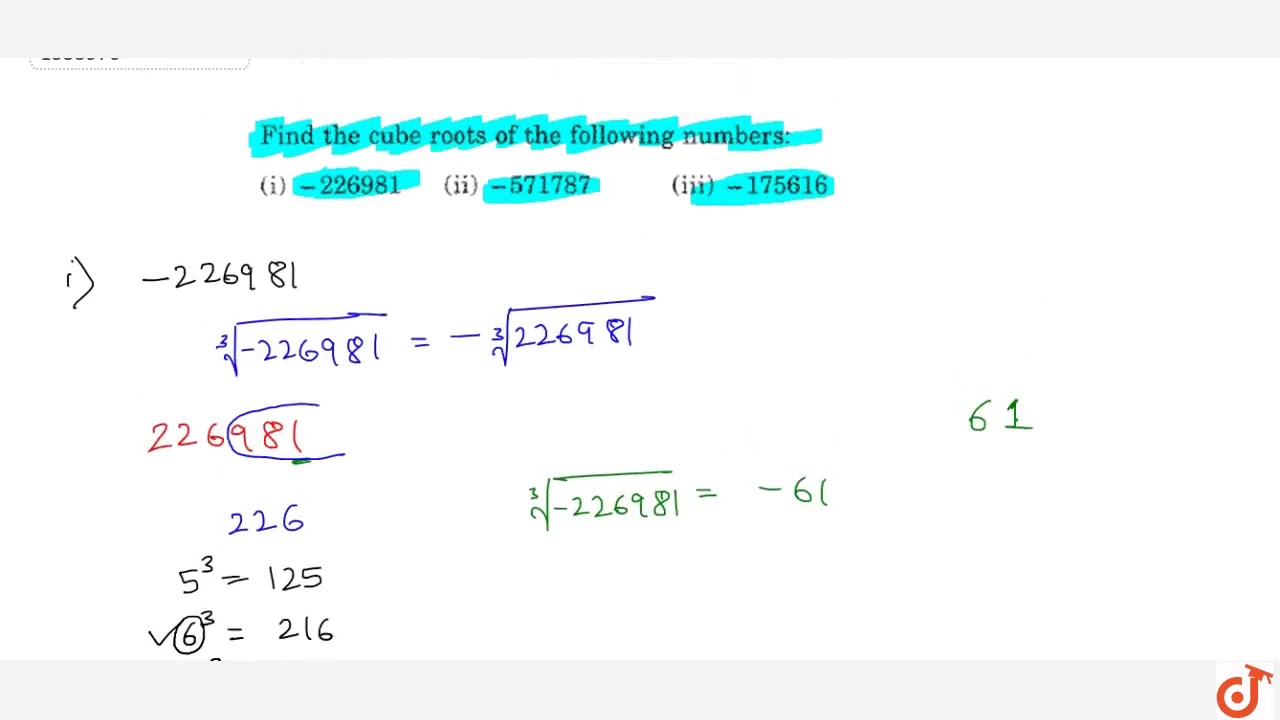 Find the cube roots of the following numbers:
(i) −226981 (ii) −571787 (iii) −175616
i) −226981
∛−226981 = −∛226981
226981
61
∛−226981 = −61
226
5³ = 125
✓6³ = 216